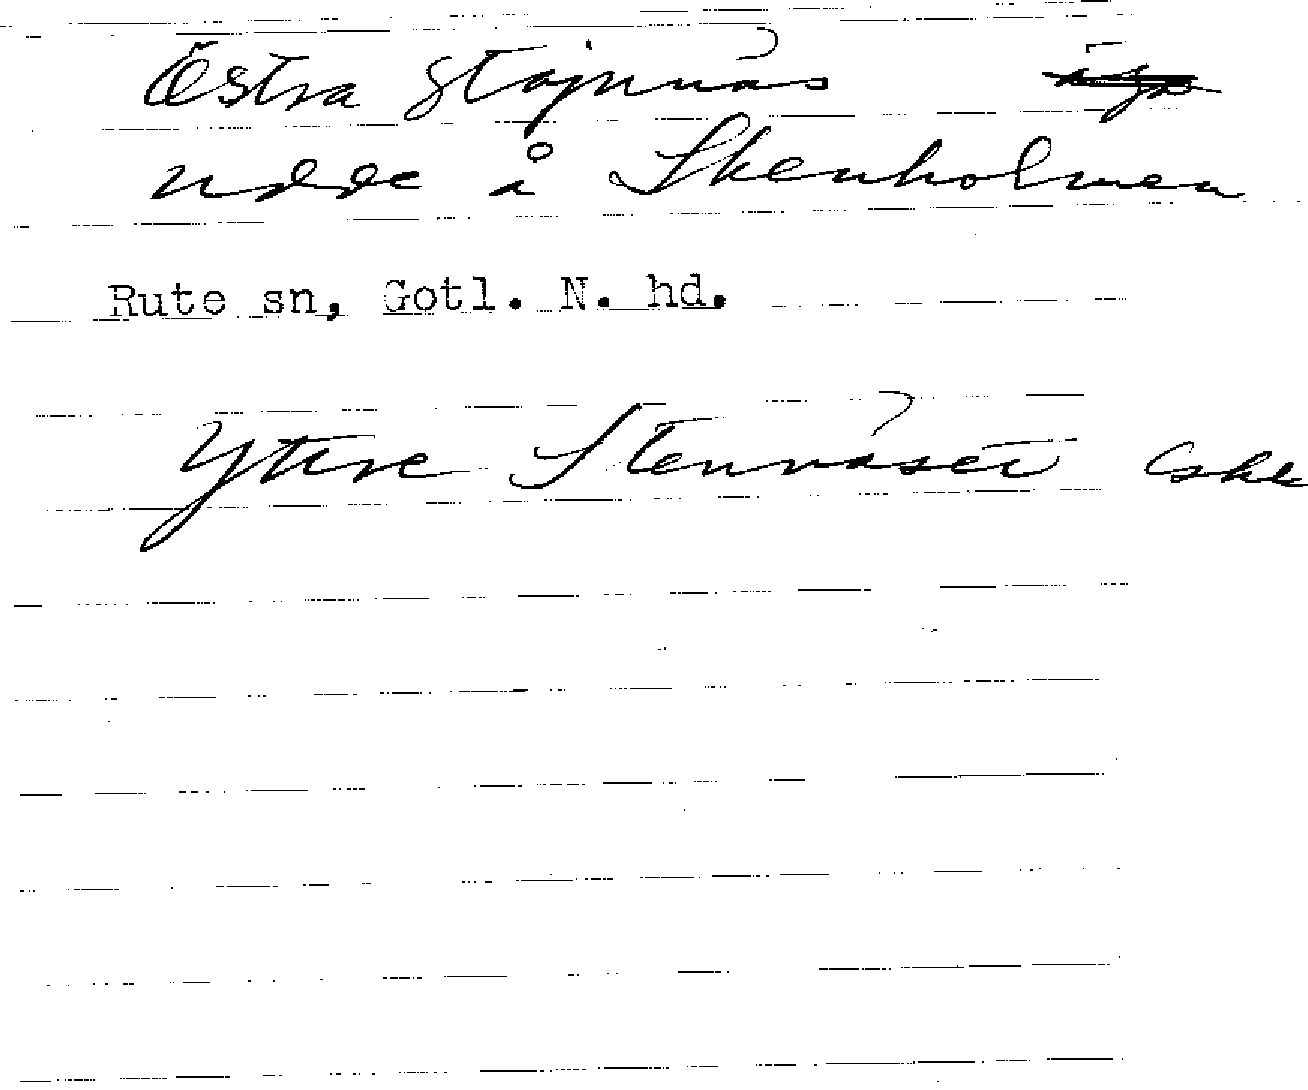 Östra stajnnäs
udde å Skenholmen
Rute sn, Gotl. N. hd.
Yttre Stennäset